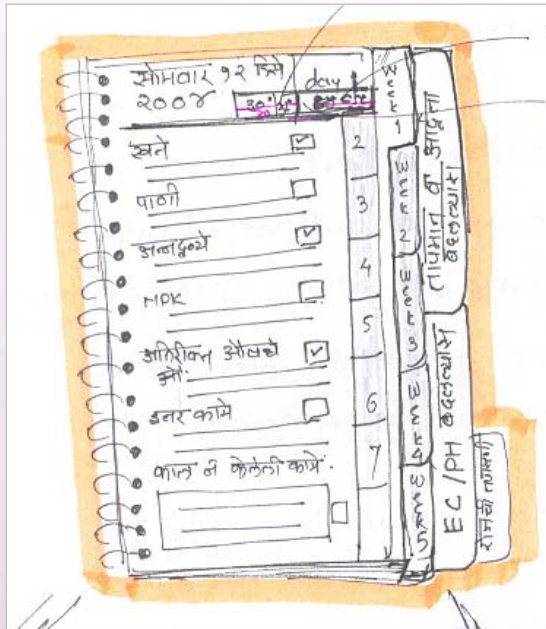 सोमवार १२ डिसे
२००४
day 1
खते
पाणी
अन्नद्रव्ये
NPK
अतिरीक्त औषधे
इतर कामे
काल न केलेली कामे.
2
3
4
5
6
7
Week 1
Week 2
Week 3
Week 4
Week 5
तापमान व आर्द्रता
बदलल्यास
EC/PH बदलल्यास